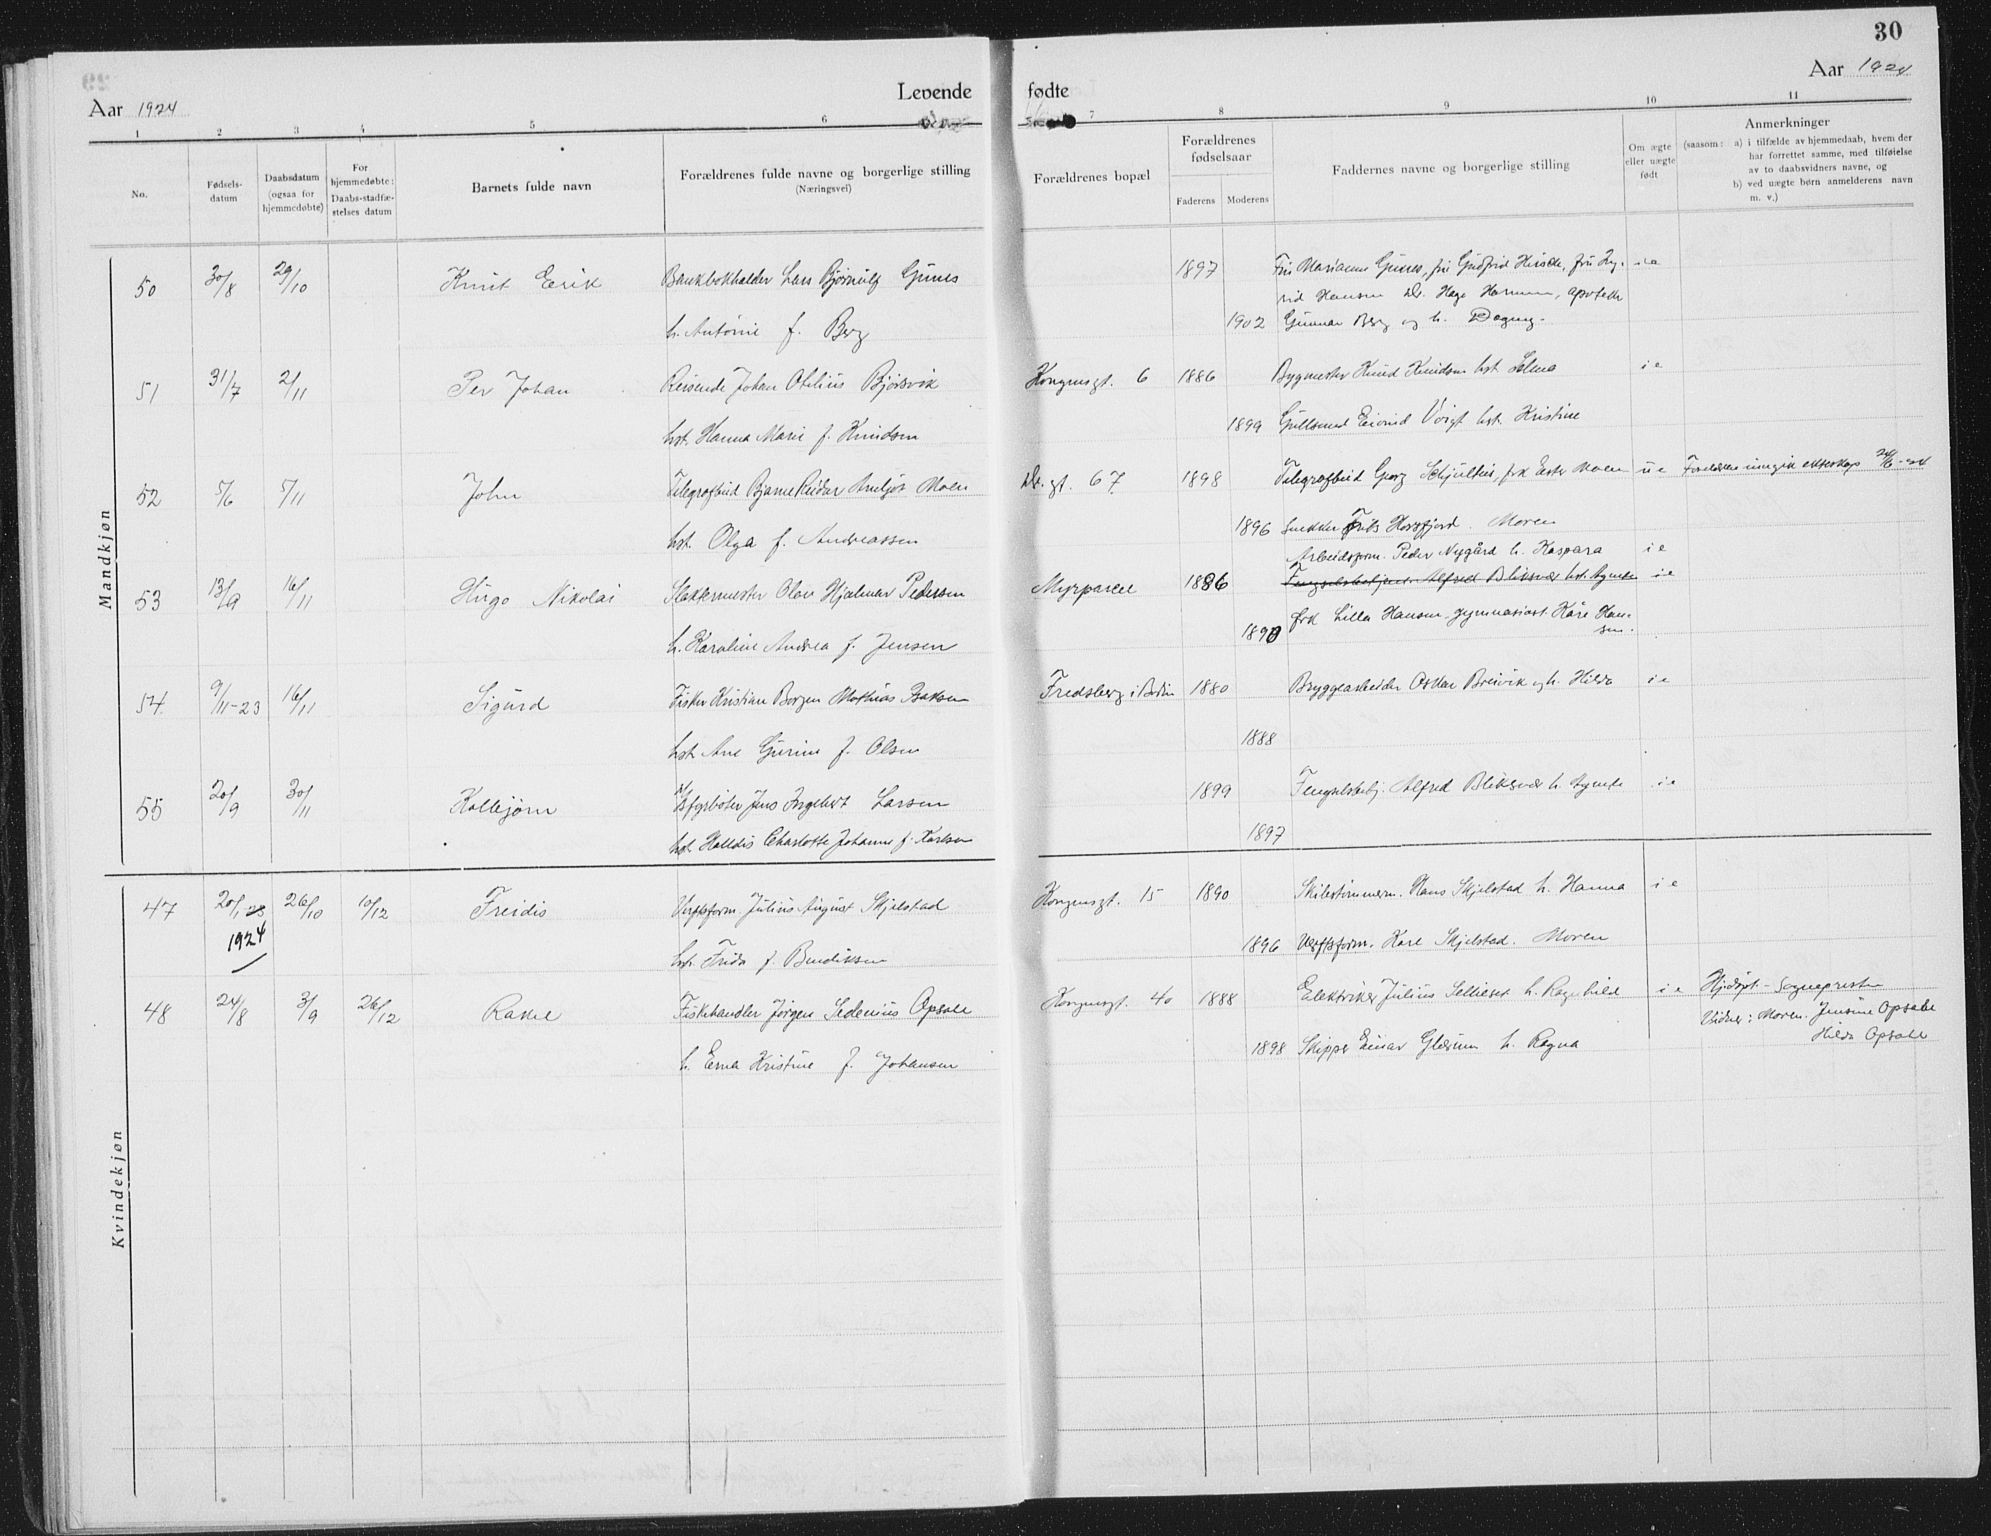 30
Aar 1924
Levende
fødte
Aar 1924
1 2 3 4 5 6 7 8 9 10 11
No.
Fødsels-
datum
Daabsdatum
(ogsaa for
hjemmedøbte)
For
hjemmedøbte:
Daabs-stadfæ-
stelses datum
Barnets fulde navn
Forældrenes fulde navne og borgerlige stilling
(Næringsvei)
Forældrenes bopæl
Forældrenes
fødselsaar
Faderens Moderens
Faddernes navne og borgerlige stilling
Om ægte
eller uægte
født
Anmerkninger
(saasom: a) i tilfælde av hjemmedaab, hvem der
har forrettet samme, med tilføielse
av to daabsvidners navne, og
b) ved uægte børn anmelderens navn
m. v.)
Mandkjøn
50 30/8 29/10 Knut Erik Bankbokholder Lars Bjørnulf 1897 Fru Marianne
h. Antonie f. Berg 1902 Gunnar Berg og h. Dagny.
51 31/7 2/11 Per Johan Reisende Johan Otelius Bjørsvik Kongensgt. 6 1886 Bygmester Knud Knudsen hst. Selma i e
hst. Hanna Marie f. Knudsen 1899 Gullsmed Eivind Voigt hst. Kristine
52 5/6 7/11 John Telegrafbud Bjarne Reidar Moen Dr. gt. 67 1898 Telegrafbud Georg Schjultius, frk Ester Moen u e Forældrene inngik ekteskap
hst. Olga f. Andreassen 1896 Snekker Horsfjord. Moren
Arbeidsform. Peder Nygård h. Kaspara i e
53 13/9 16/11 Hugo Nikolai Slaktermester Olav Hjalmar Pedersen Myrparcel 1886 Fengselsbetjent Alfred Bliksvær hst. Agnete i e
h. Karoline Andrea f. Jensen 1890 frk Lilla Hansen, gymnasiast Kåre Han-
sen.
54 9/11-23 16/11 Sigurd Fisker Kristian Borgen Mathias Isaksen Fredsberg i Bodin 1880 Bryggearbeider Oskar Breivik og h. Hilda i e
hst. Ane Gurine f. Olsen 1888
55 20/9 30/11 Kollbjørn Jens Ingebert Larsen 1899 Fengselsbetj. Alfred Bliksvær h. Agnete i e
hst. Halldis Charlotte Johanne f. Karlsen 1897
Kvindekjøn
47 20/1 23 26/10 10/12 Freidis Verftsform. Julius August Skjelstad Kongensgt. 15 1890 Skibstømmerm. Hans Skjelstad h. Hanna i e
1924
hst. Frida f. Bendiksen 1896 Verftsform. Kare Skjelstad. Moren
48 24/8 3/9 26/12 Rakel Fiskehandler Jørgen Sedenius Opsale Kongensgt. 40 1888 Elektriker Julius Sellieset h. Ragnhild i e Hjdøpt - Sogneprest
Vidner: Moren. Jensine Opsale
h. Erna Kristine f. Johansen 1898 Skipper Einar Glærum h. Ragna Hilda Opsale